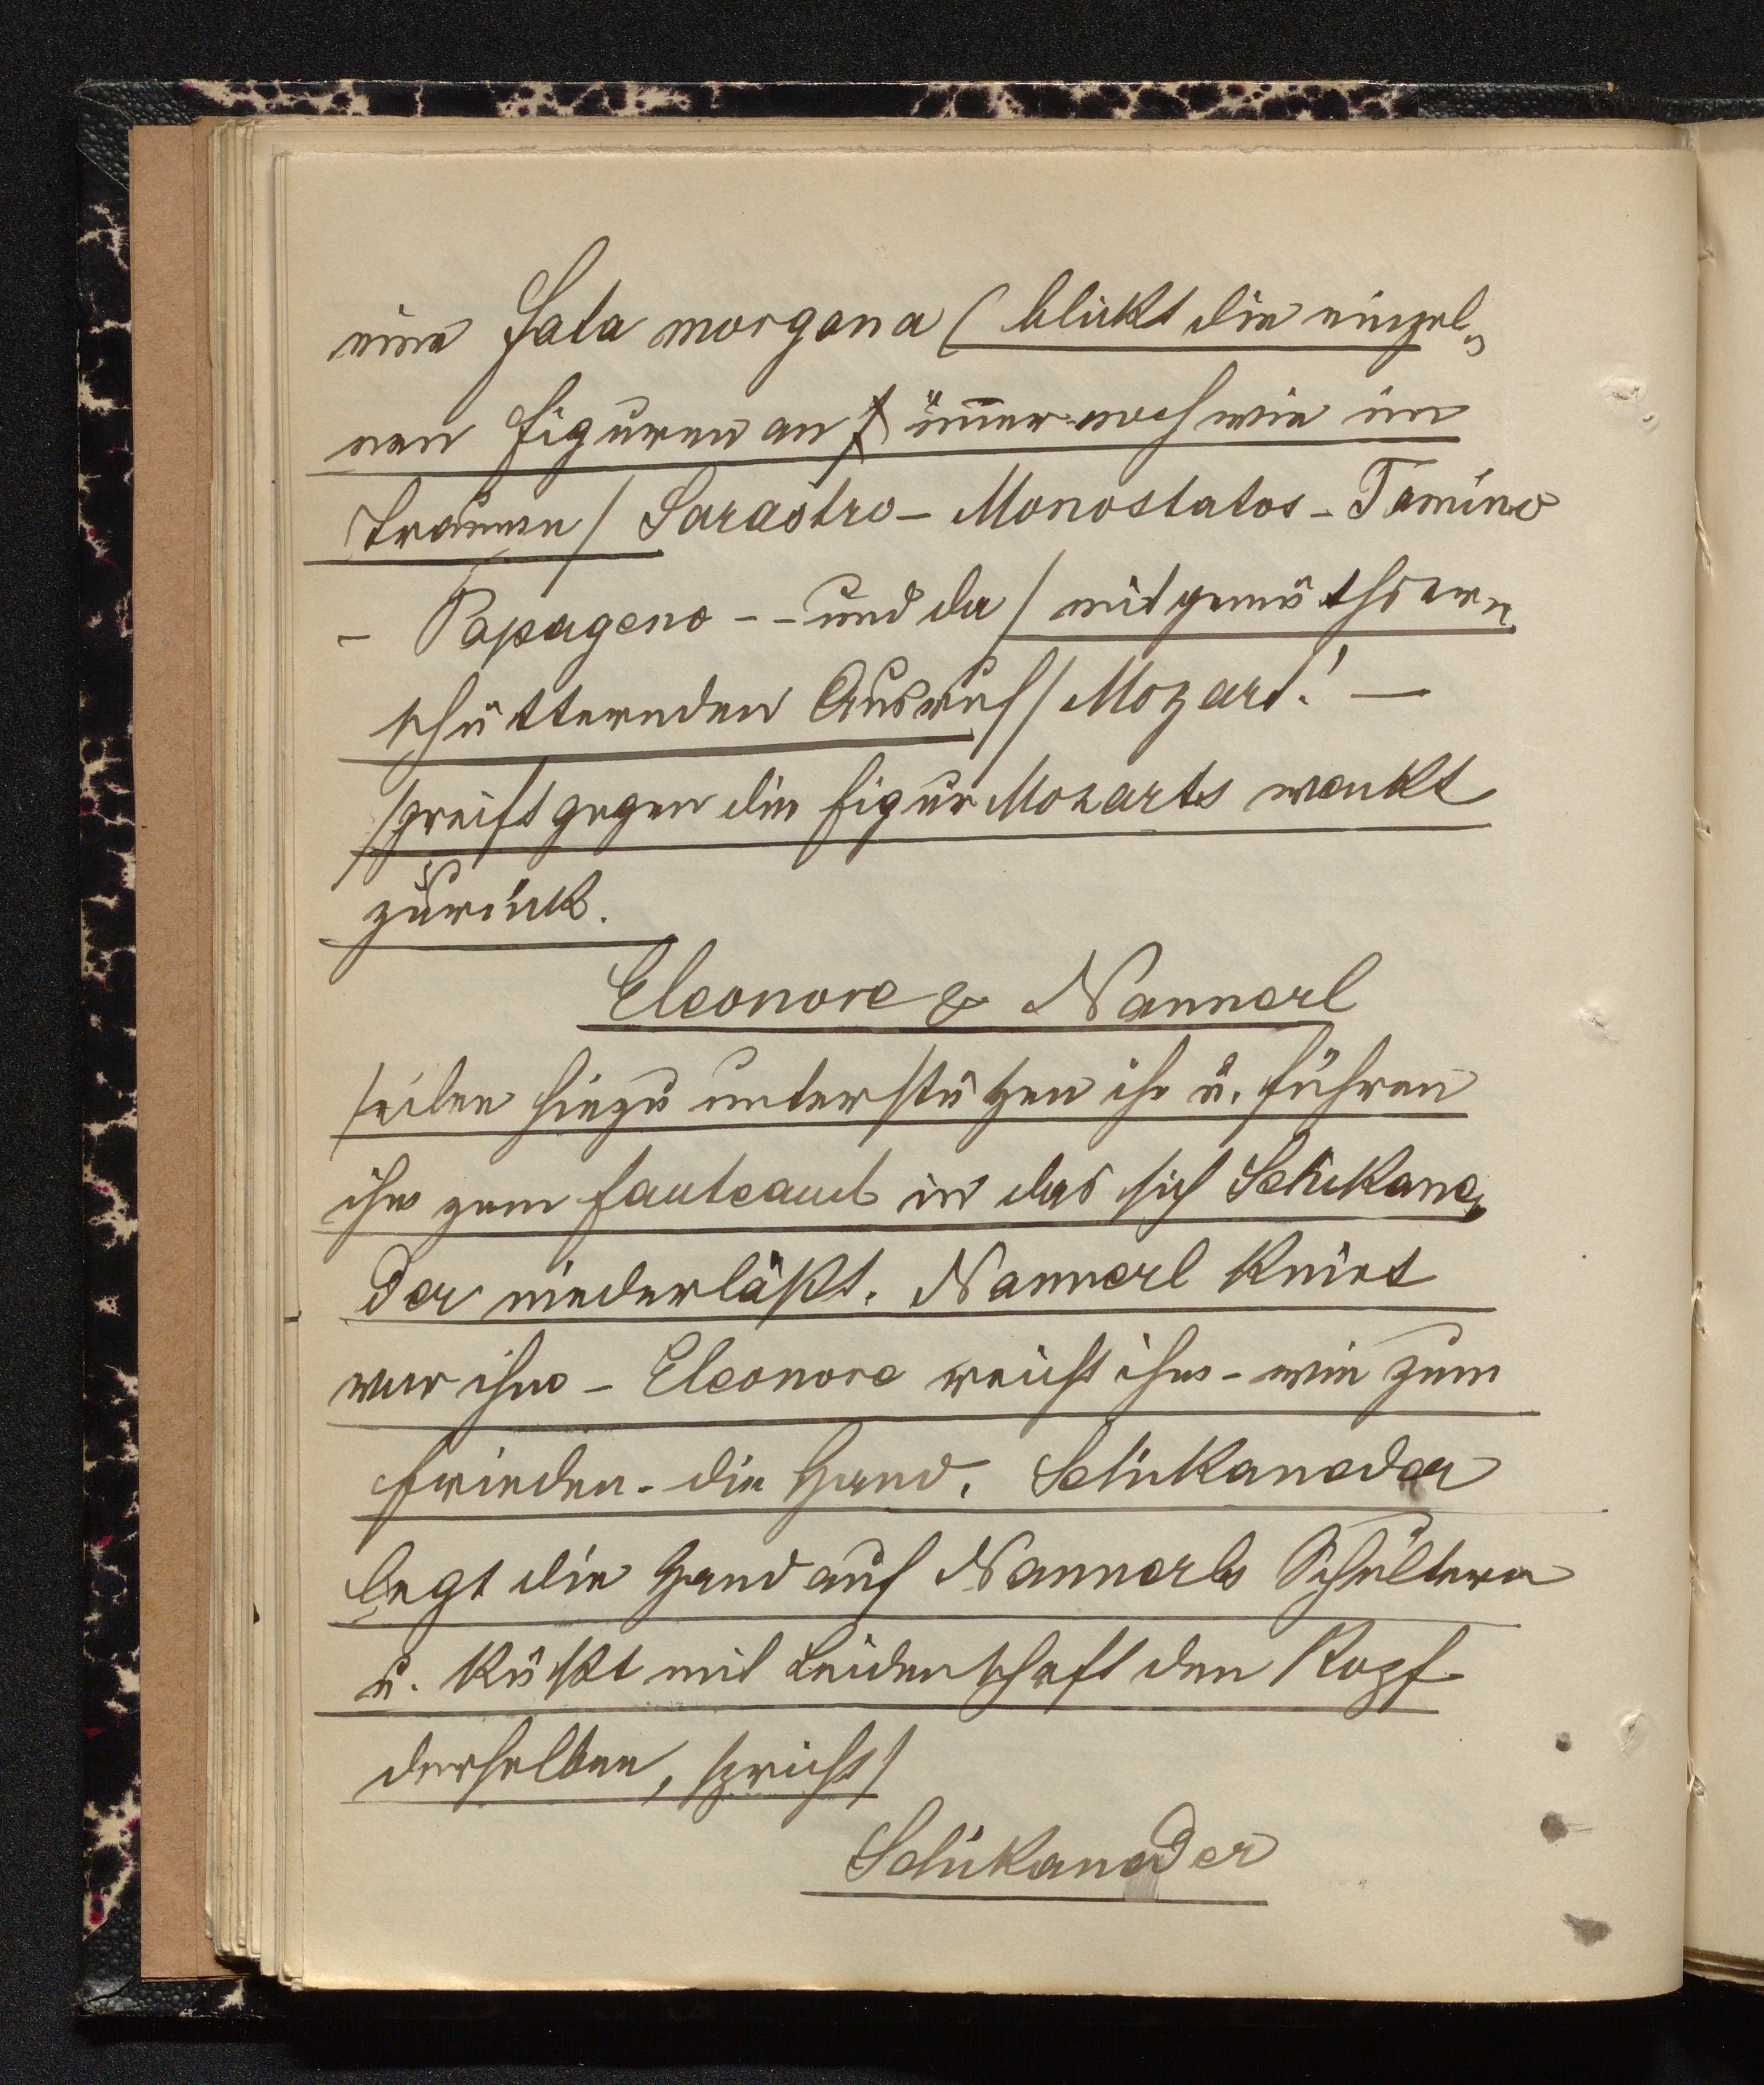 eine Fata morgana (blickt die einzel„
nen Figuren an im̅er noch wie im
Traume/ Sarastro – Monostatos – Tamino
– Papageno – – und da /mit gemüthser„
schütternden Ausruf/ Mozart! —
/greift gegen die Figur Mozarts wankt
zurück.
Eleonore & Nannerl
/eilen hinzu unterstützen ihn u. führen
ihn zum Fauteauil in das sich Schikane„
der niederläßt. Nannerl kniet
vor ihm – Eleonore reicht ihm – wie zum
Frieden – die Hand. Schikaneder
legt die Hand auf Nannerls Schultern
u. küßt mit Leidenschaft den Kopf
derselben, spricht/
Schikaneder